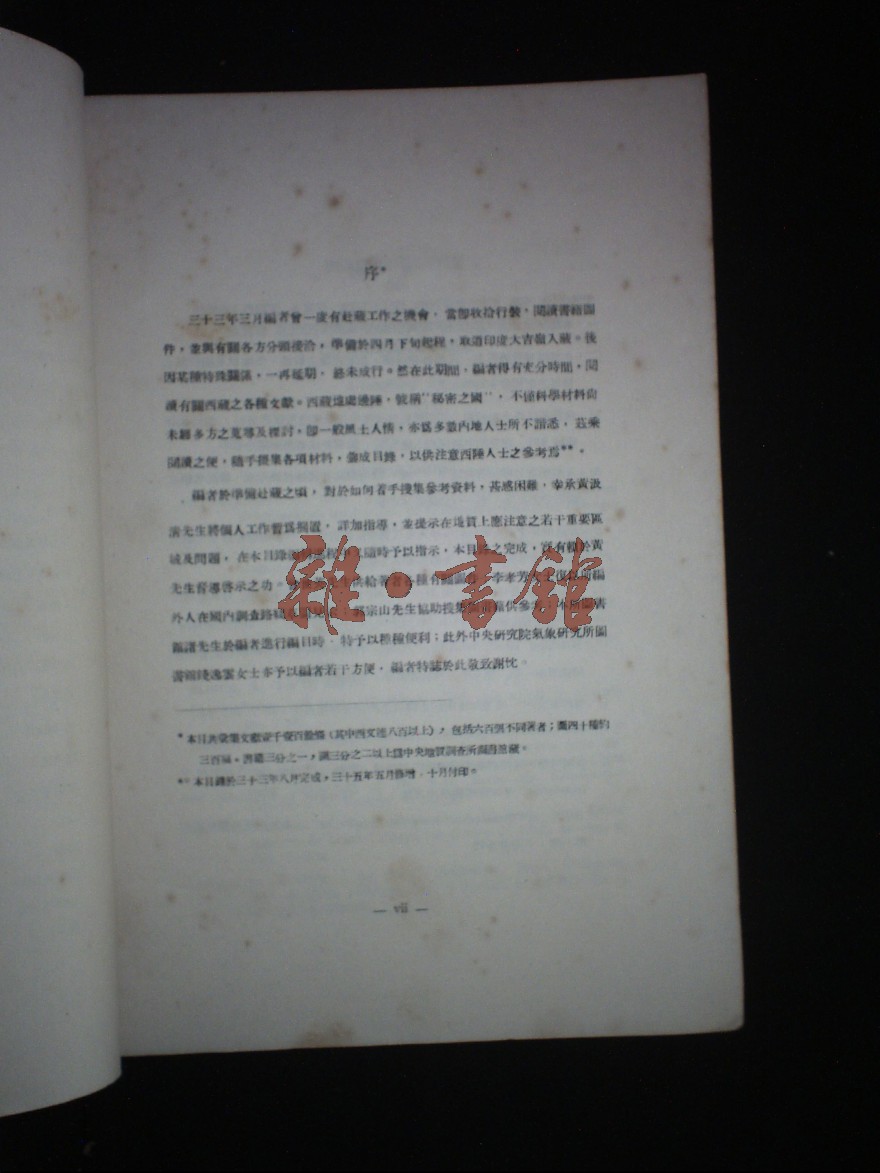 序*
三十三年三月編者曾一度有赴藏工作之機會，當即收拾行裝，閱讀書籍圖
件，並與有關各方分頭接洽，準備於四月下旬起程，取道印度大吉嶺入藏。後
因某種特殊關係，一再延期，終未成行。然在此期間，編者得有充分時間，閱
讀有關西藏之各種文獻。西藏遠處邊陲，號稱"秘密之國"，不僅科學材料尚
未經多方之蒐尋及探討，即一般風土人情，亦爲多數內地人士所不諳悉，茲乘
閱讀之便，隨手搜集各項材料，彙成目錄，以供注意西陲人士之參考焉**。
編者於準備赴藏之頃，對於如何着手搜集參考資料，甚感困難，幸承黃汲
清先生將個人工作暫爲擱置，詳加指導，並提示在地質上應注意之若干重要區
域及問題，在本目錄 隨時予以指示，本目錄之完成，實有賴於黃
先生督導啓示之功。 先生供給著者各種有關 李孝芳女士 所編
外人在國內調查路線 郭宗山先生協助搜集 供參考；本所圖書
館諸先生於編者進行編目時，特予以種種便利；此外中央研究院氣象研究所圖
書館錢逸雲女士亦予以編者若干方便，編者特誌於此敬致謝忱。
*本目共彙集文獻壹千壹百餘條（其中西文近八百以上），包括六百個不同著者；圖四十種約
三百幅。書籍三分之一，圖三分之二以上爲中央地質調查所圖書館藏。
**本目錄於三十三年八月完成，三十五年五月修增，十月付印。
— vii —
雜·書館